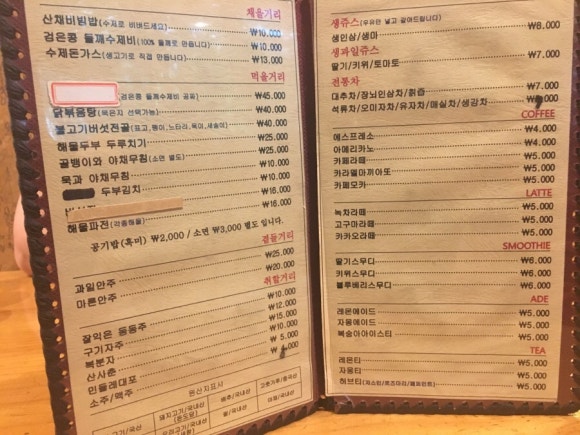 채울거리
산채비빔밥(수제로 비벼드세요) ₩10,000
검은콩 들깨수제비(100% 들깨로 만듭니다) ₩10,000
수제돈가스(생고기로 직접 만듭니다) ₩13,000
먹을거리
검은콩 들깨수제비 공짜) ₩45,000
닭볶음탕(묵은지 선택가능) ₩40,000
불고기버섯전골(표고, 팽이, 느타리, 목이, 새송이) ₩40,000
해물두부 두루치기 ₩25,000
골뱅이와 야채무침(소면 별도) ₩25,000
묵과 야채무침
두부김치 ₩16,000
해물파전(각종해물) ₩16,000
공기밥(흑미) ₩2,000 / 소면 ₩3,000 별도 입니다.
곁들거리
과일안주 ₩25,000
마른안주 ₩20,000
취할거리
잘익은 동동주 ₩10,000
구기자주 ₩12,000
복분자 ₩15,000
산사춘 ₩10,000
민들레대포 ₩5,000
소주/맥주
원산지표시
생쥬스(우유만 넣고 갈아드립니다)
생인삼/생마 ₩8,000
생과일쥬스
딸기/키위/토마토 ₩7,000
전통차
대추차/장뇌민삼차/칡즙 ₩7,000
석류차/오미자차/유자차/매실차/생강차
COFFEE
에스프레소 ₩4,000
아메리카노 ₩4,000
카페라떼 ₩5,000
카라멜마끼아또 ₩5,000
카페모카 ₩5,000
LATTE
녹차라떼 ₩5,000
고구마라떼 ₩5,000
카카오라떼 ₩5,000
SMOOTHIE
딸기스무디 ₩6,000
키위스무디 ₩6,000
블루베리스무디 ₩6,000
ADE
레몬에이드 ₩5,000
자몽에이드 ₩5,000
복숭아아이스티 ₩5,000
TEA
레몬티 ₩5,000
자몽티 ₩5,000
허브티(자스민/히즈마리/페퍼민트) ₩5,000